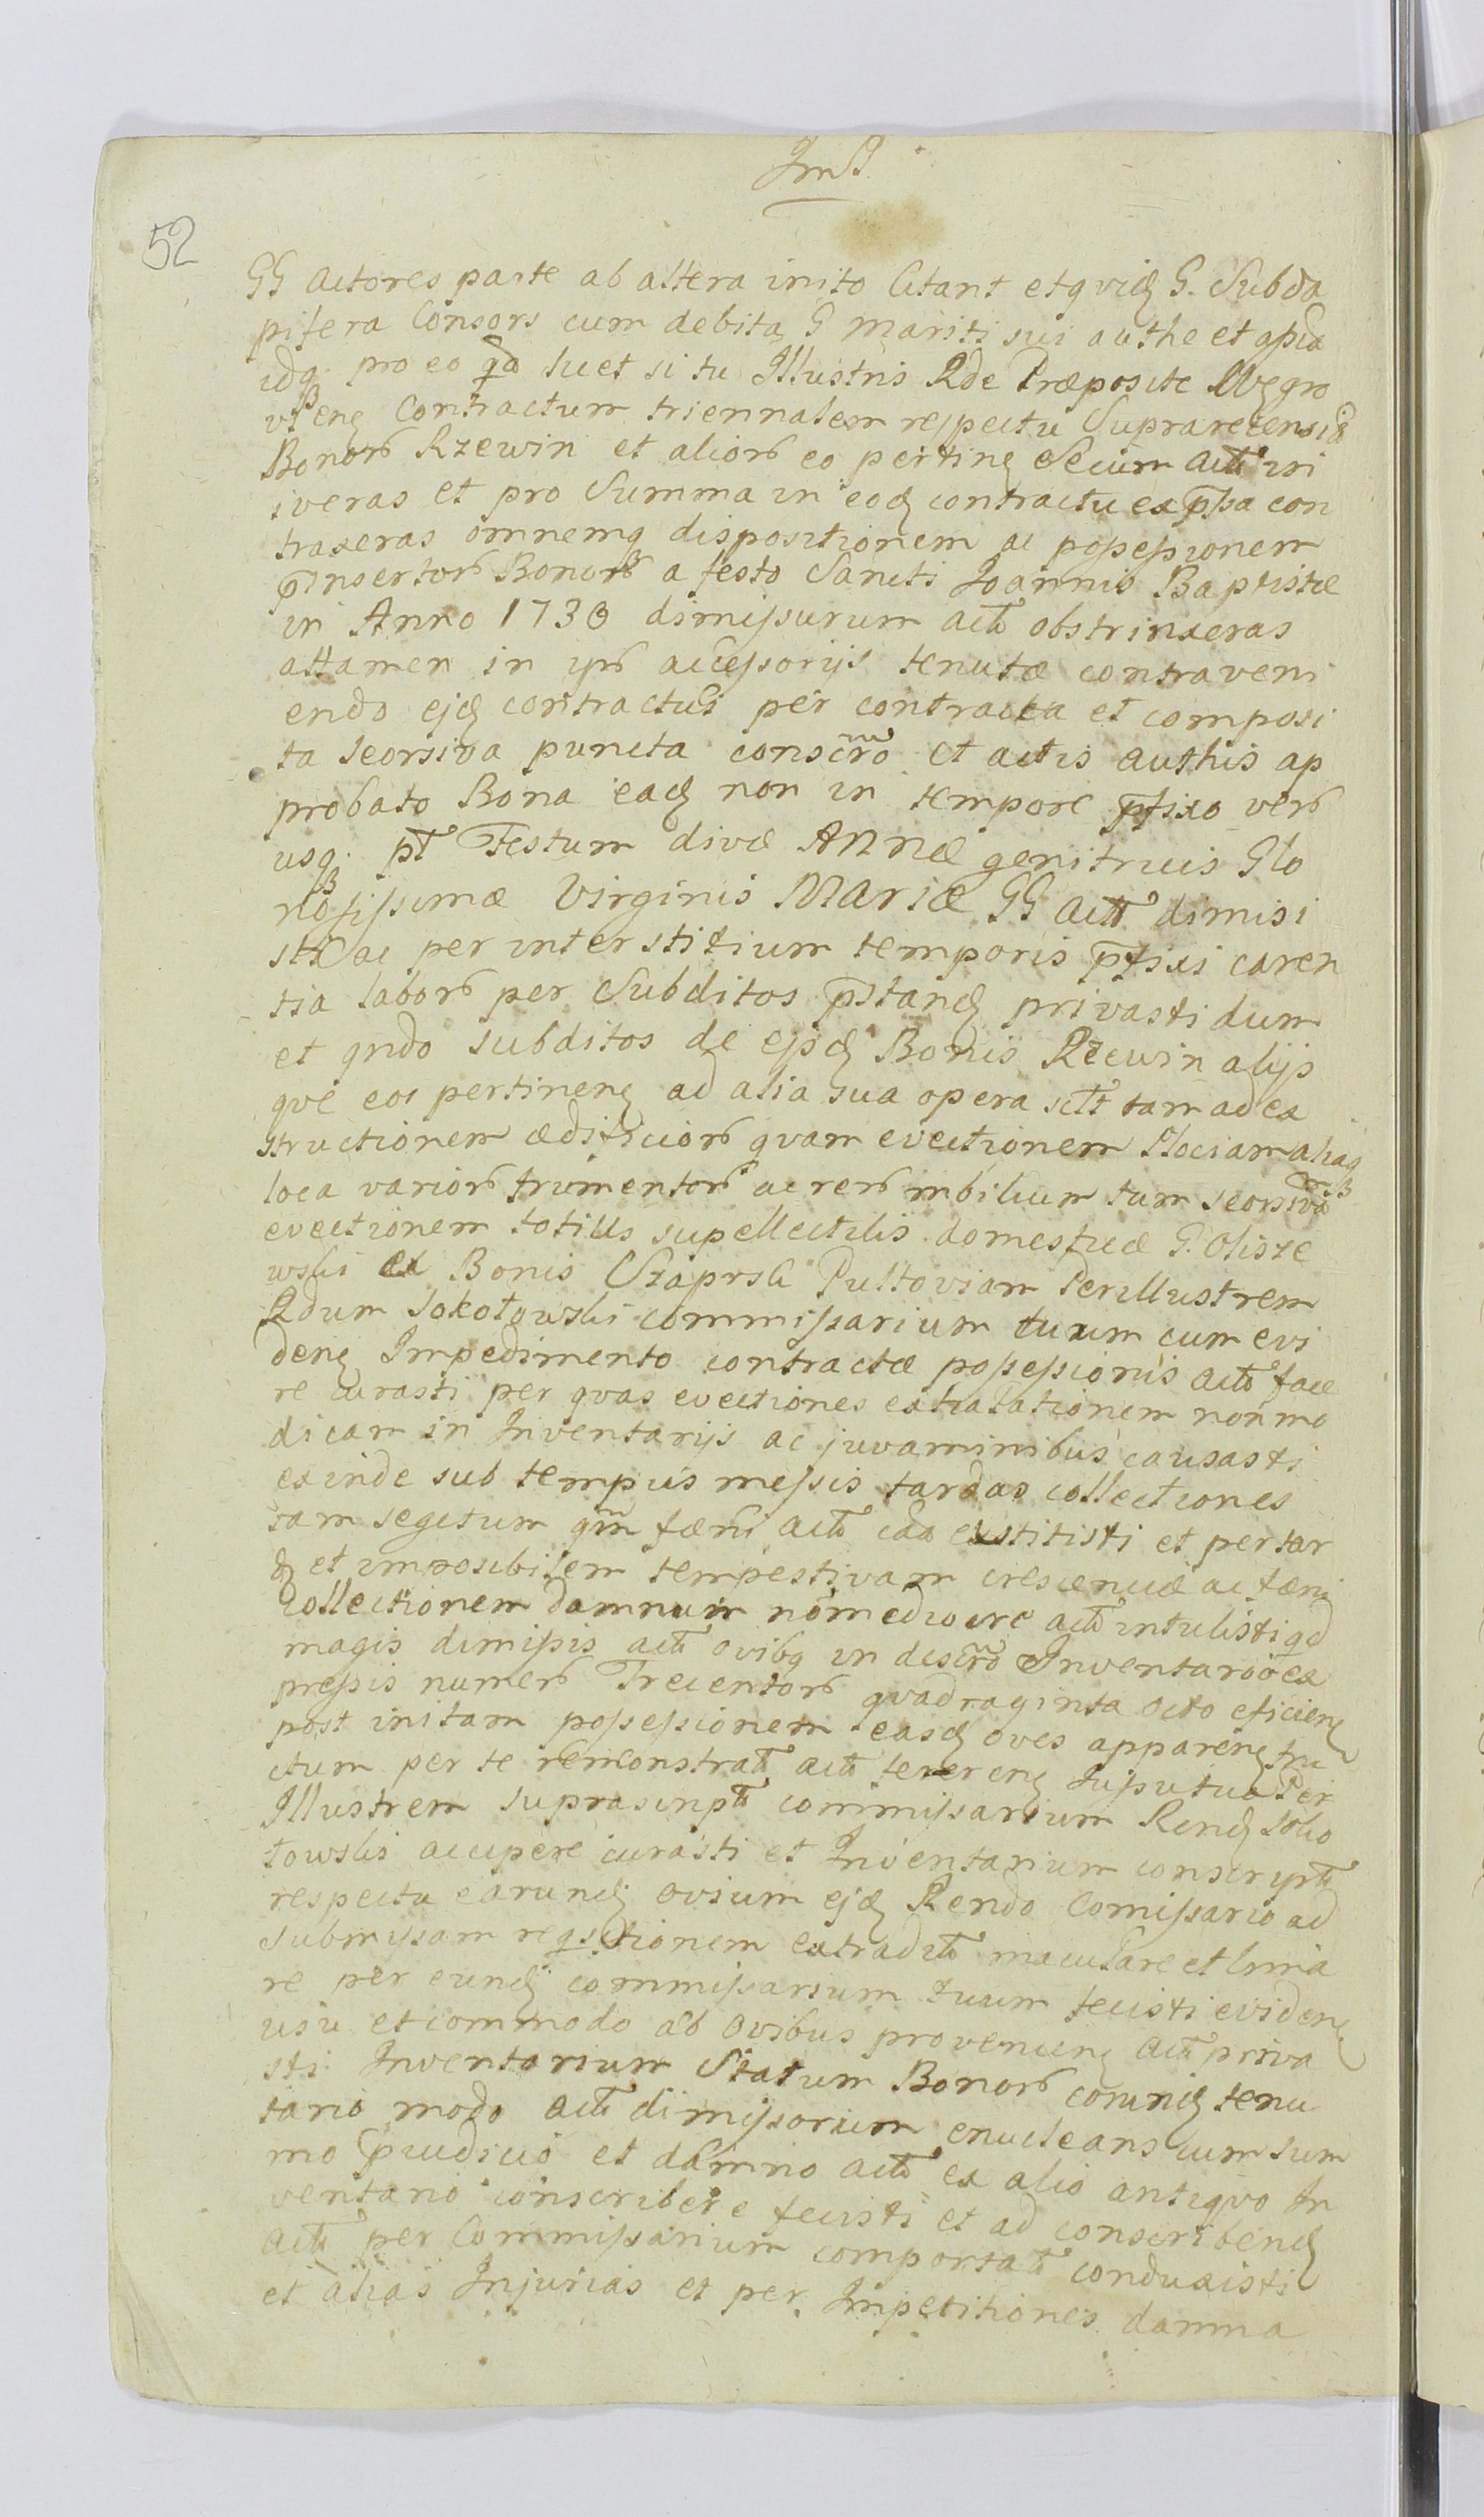 52
GG Actores parte ab altera inito Citant et qvid G. Subda
pifera Consors cum debita G Mariti sui authe et
idq pro eo qd licet si tu Illustris Rde Præposite Węgro
Contractum triennalem respectu Supra
Bonor Rzewin et alior eo pertinen Secum Act ini
iveras et pro Summa in eod contractu expssa con
traxeras omnemq dispositionem ac possessionem
pinsertor Bonor a festo Sancti Joannis Baptistæ
in Anno 1738 dimissurum act obstrinxeras
attamen in accessorijs tenutæ contraveni
endo ejd contractui per contracta et composi
ta seorsiva puncta conscro et actis authis ap
probato Bona ead non in tempore pfixo vero
usq pt Festum divæ ANNæ genitricis Glo
riosissimæ Virginis MARIæ GG Act dimisi
sti ac per interstitium temporis pfixi caren
tia labor per Subditos pstand privasti dum
et qndo subditos de ejsd Bonis Rzewin alijs
qve eo pertinen ad alia sua opera sctt tam ad ex
structionem ædificior qvam evectionem Plociam aliaq
loca varior frumentor ac rer mbilium tum seorsiva
evectionem totius supellectilis domesticæ G. Olsze
wski ex Bonis Pultoviam Perillustrem
Rdum Sokołowski commissarium tuum cum evi
den Impedimento contractæ possessionis act face
re curasti per qvas evectiones extradationem non mo
dicam in Inventarijs ac juvaminibus causasti
exinde sub tempus messis tardas collectiones
tam segetum qm fæni act cda exstitisti et per tar
d et impossibilem tempestivam crescenciæ ac fæni
collectionem damnum nomediocre act intulisti qd
magis dimissis act ovibq in descro Inventario ex
pressis numero Trecentor qvadraginta octo eficien
post initam possessionem easd oves apparen
ctum per te remonstrat act Per
Illustrem suprascript commissarium Rend Soko
łowski accipere curasti et Inventarium conscript
respectu earund ovium ejd Rendo Comissario ad
submissam reqsitionem extradit maculare et
re per eund commissarium tuum fecisti eviden
usu et commodo ab ovibus provenien act priva
sti Inventarium Statum Bonor eorund tenu
tario modo act dimissorium enucleans cum sum
mo pjudicio et damno act ex alio antiqvo In
ventario conscribere fecisti et ad conscribend
act per Commissarium comportat conduxisti
et alias Injurias et per Impetitiones damna